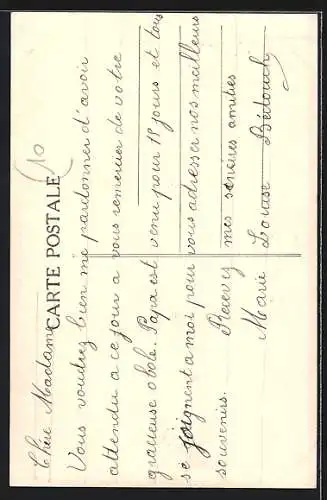 CARTE POSTALE
10
Chère Madame
Vous voudrez bien me pardonner d'avoir
attendu a ce jour a vous remercier de votre
gracieuse obole. Papa est venu pour 18 jours et tous
se joignent a moi pour vous adresser nos meilleurs
souvenirs. Recevez mes sincères amitiés
Marie Louise